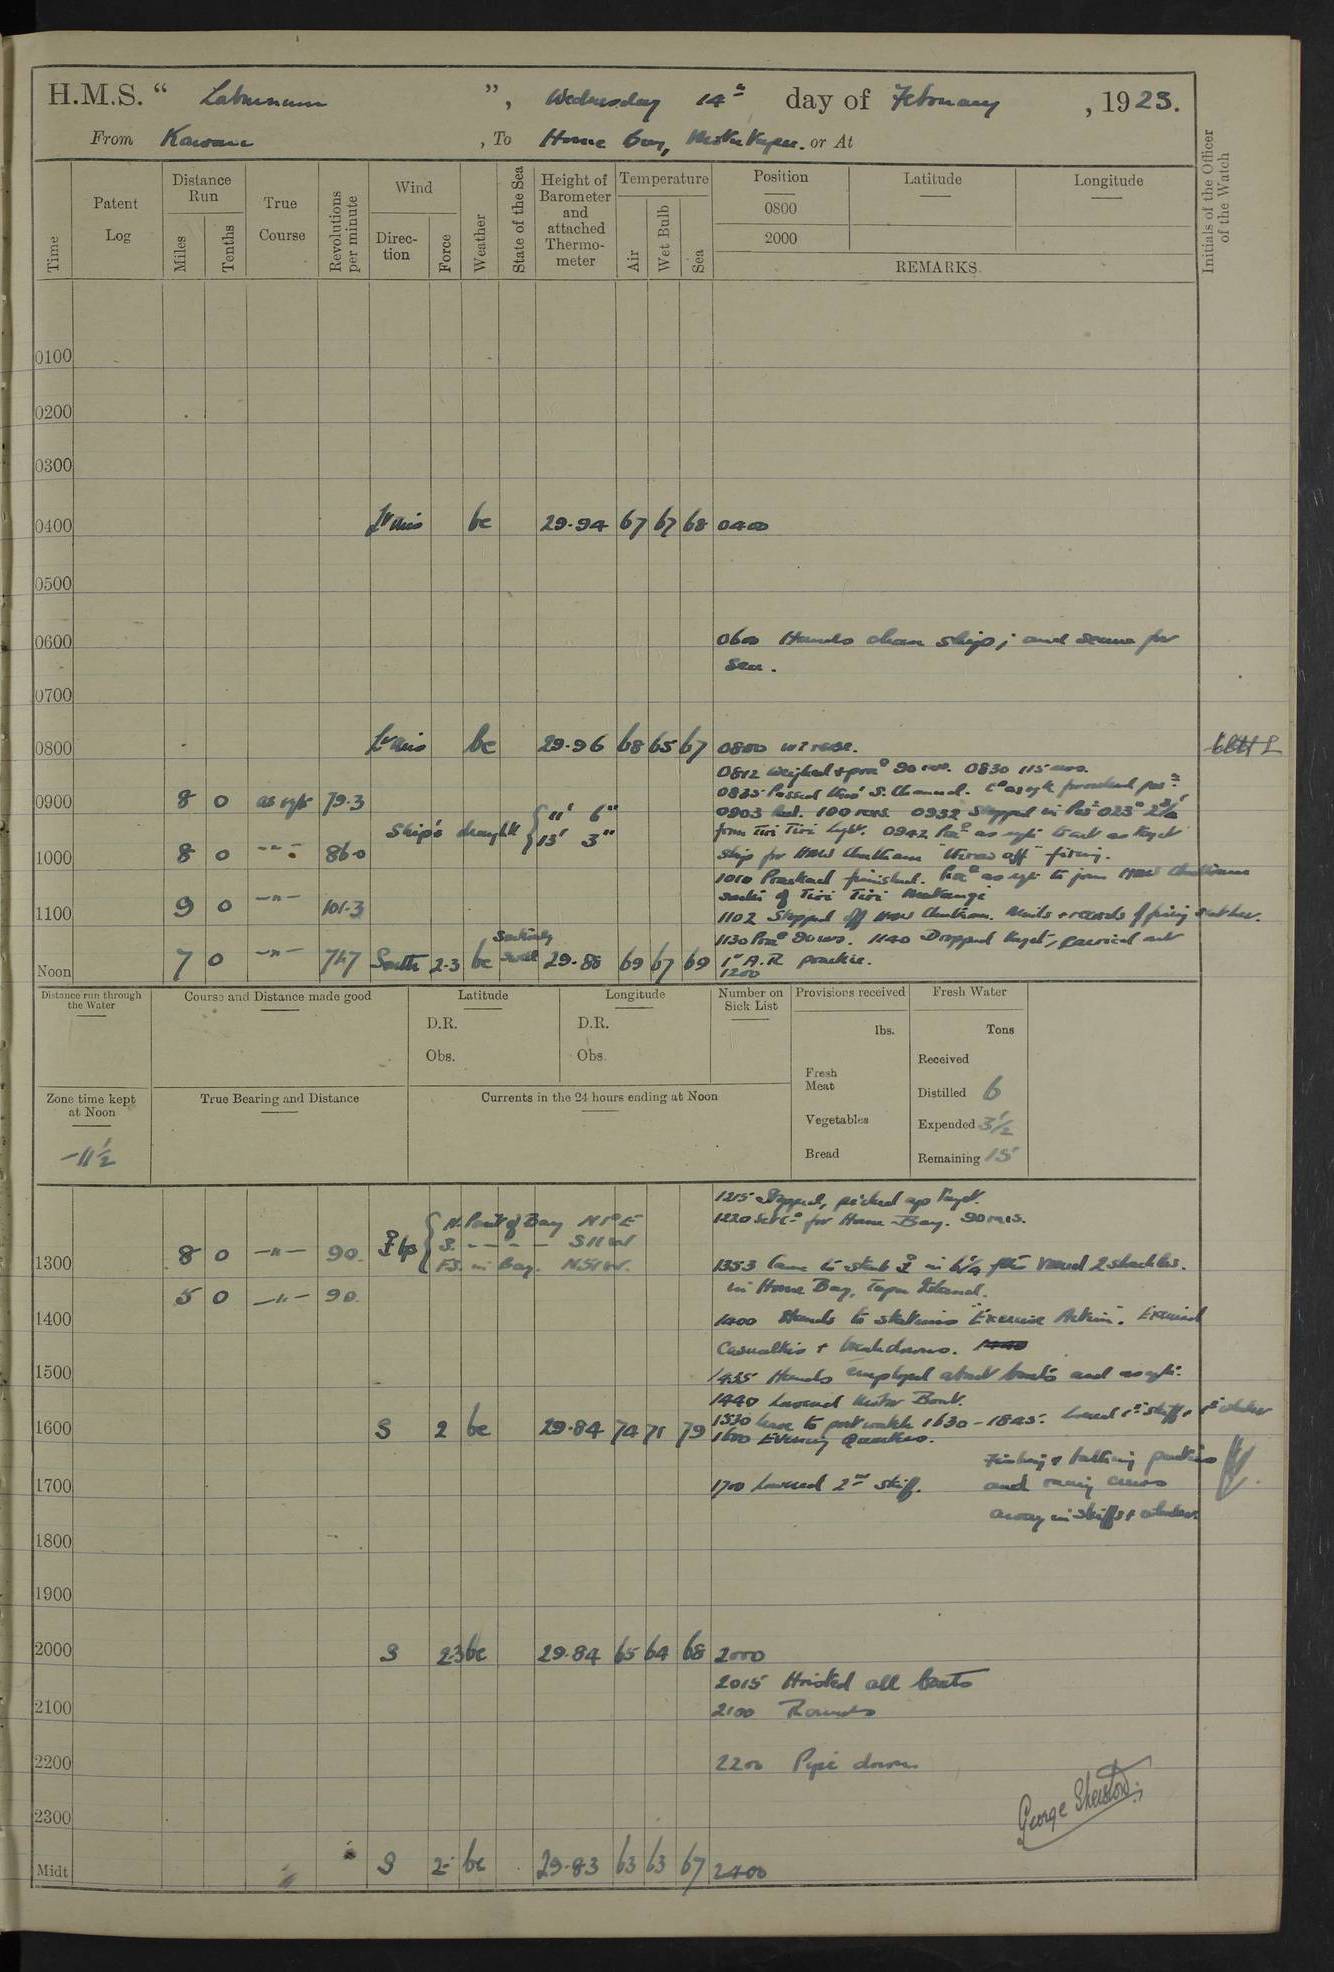 H.M.S. " Laburnum ", Wednesday 14th day of February, 1923.
From Kawau, To Home Bay, or At
Time
Patent Log
Distance Run
Miles
Tenths
True Course
Revolutions per minute
Wind
Direction
Force
Weather
State of the Sea
Height of Barometer and attached Thermometer
Temperature
Air
Wet Bulb
Sea
Position
0800
2000
Latitude
Longitude
REMARKS.
Initials of the Officer of the Watch
0100
0200
0300
0400 Lt airs bc 29.94 67 67 68 0400
0500
0600 0600 Hands clean ship; and secure for
sea.
0700
0800 Lt airs bc 29.96 68 65 67 0800
0812 Weighed & procd 90 revs. 0830 115 revs.
0835 Passed thro' S. Channel. Co as req
0900 8 0 as req 79.3
0903 100 revs 0932 Stopped in Posn 023° 2 3/4'
Ship's draught { 11' 6"
13' 3"
from Tiri Tiri Light. 0942 Procd as req to act as target
1000 8 0 -"- 86.0 ship for HMS Chatham "throw off" firing.
1010 Practice finished. Procd as req to join HMS Chatham
south of Tiri Tiri Matangi
1100 9 0 -"- 101.3
1102 Stopped off HMS Chatham. Mails & records of firing
1130 Procd 90 revs. 1140 Dropped target, carried out
Noon 7 0 -"- 74.7 South 2-3 bc swell 29.88 69 67 69 1" A.R. practice.
1200
Distance run through the Water
Course and Distance made good
Latitude
D.R.
Obs.
Longitude
D.R.
Obs.
Number on Sick List
Provisions received
lbs.
Fresh Meat
Vegetables
Bread
Fresh Water
Tons
Received
Distilled 6
Expended 3½
Remaining 15
Zone time kept at Noon
-11½
True Bearing and Distance
Currents in the 24 hours ending at Noon
1215 Stopped, picked up target.
N. Point of Bay N1°E
1220 Set Co for Home Bay. 90 revs.
S. - - - - S11W
1300 8 0 -"- 90.
F.S. in Bay. N51W.
1353 Came to stbd in 6¼ fms veered 2 shackles.
5 0 -"- 90.
in Home Bay, Island.
1400 1400 Hands to stations "Exercise Action". Exercised
casualties & breakdowns. 1440
1500 1435 Hands employed about boats and as req.
1440 Lowered Motor Boat.
1530 Leave to port watch 1630 - 1845. Lowered 1st skiff &
1600 S 2 bc 29.84 74 71 79 1600 Evening Quarters.
Fishing & bathing parties
1700 1700 Lowered 2nd skiff. and racing crews
away in skiffs &
1800
1900
2000 S 2-3 bc 29.84 65 64 68 2000
2015 Hoisted all boats
2100 2100 Rounds
2200 2200 Pipe down
George Sherston
2300
Midt S 2 bc 29.83 63 63 67 2400